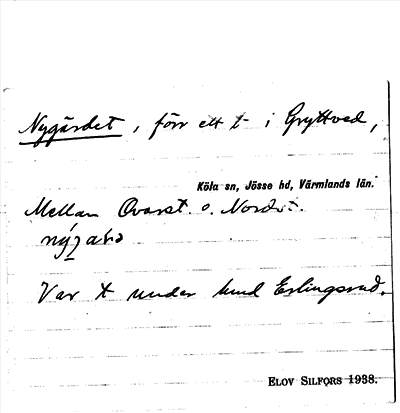 Nygärdet, förr ett t i Gryttved,
Köla sn, Jösse hd, Värmlands län.
Mellan Ovanst. o. Nordst.
Var t under hmd Erlingsrud.
ELOV SILFORS 1938.